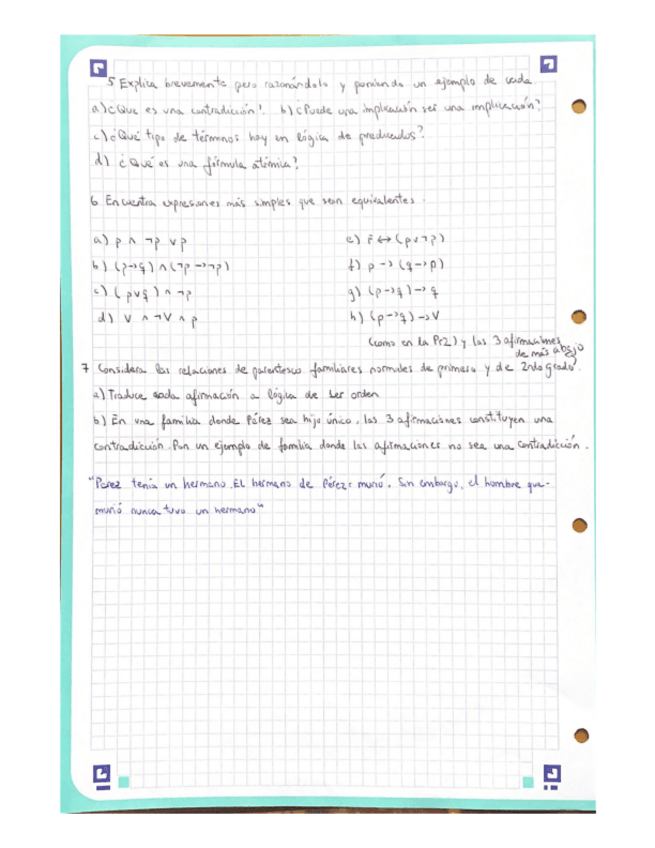 5 Explica brevemente pero razonándolo y poniendo un ejemplo de cada.
a) ¿Que es una contradicción?. b) ¿Puede una implicación ser una implicación?
c) ¿Qué tipo de términos hay en lógica de predicados?
d) ¿Qué es una fórmula atómica?
6 Encuentra expresiones más simples que sean equivalentes.
a) p ∧ ¬p ∨ p
e) F ↔ (p ∨ ¬p)
b) (p→q) ∧ (¬p→¬p)
f) p → (q→p)
c) (p∨q) ∧ ¬p
g) (p→q)→q
d) V ∧ ¬V ∧ p
h) (p→q)→V
(como en la Pr2) y las 3 afirmaciones
de más abajo
7 Considera las relaciones de parentesco familiares normales de primero y de 2ndo grado.
a) Traduce cada afirmación a lógica de 1er orden
b) En una familia donde Pérez sea hijo único, las 3 afirmaciones constituyen una
contradicción. Pon un ejemplo de familia donde las afirmaciones no sea una contradicción.
"Perez tenía un hermano. El hermano de Pérez murió. Sin embargo, el hombre que
murió nunca tuvo un hermano"